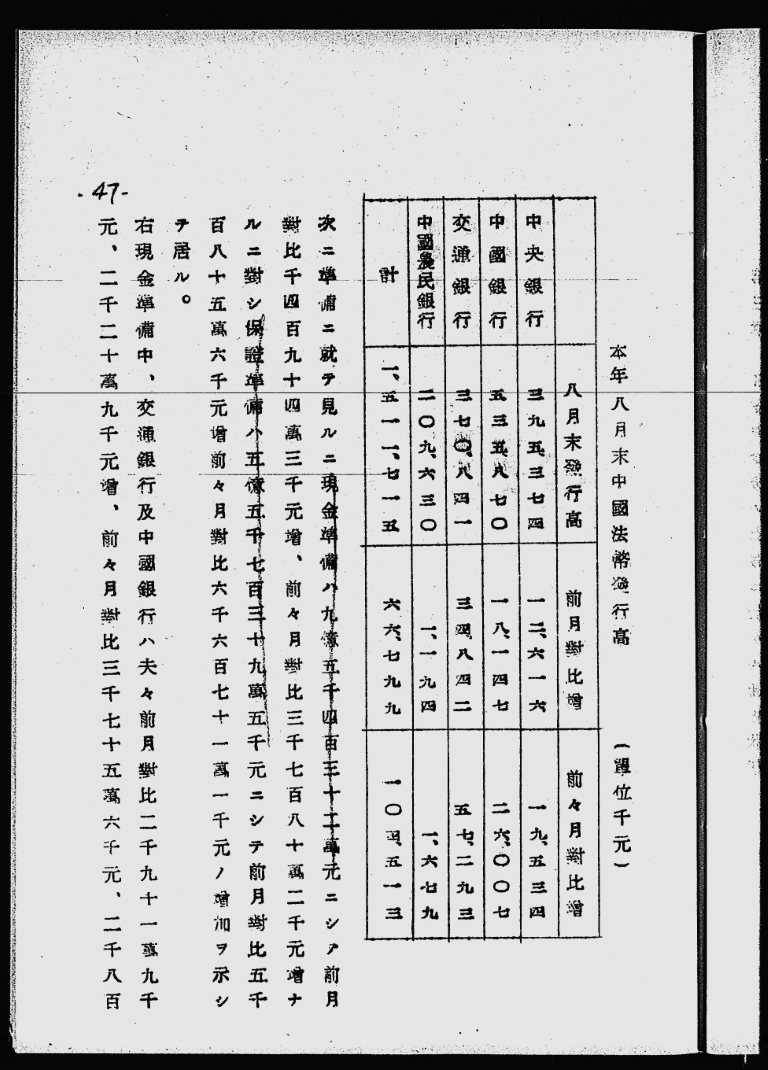 本年八月末中國法幣發行高　（單位千元）
八月末發行高　前月對比增　前々月對比增
中央銀行　三九五、三七四　一二、六一六　一九、五三四
中國銀行　五三五、八七〇　一八、一四七　二六、〇〇七
交通銀行　三七〇、八四一　三四、八四二　五七、二九三
中國農民銀行　二〇九、六三〇　一、一九四　一、六七九
計　一、五一一、七一五　六六、七九九　一〇四、五一三
次ニ準備ニ就テ見ルニ現金準備ハ九億五千四百三十二萬元ニシテ前月
對比千四百九十四萬三千元增、前々月對比三千七百八十萬二千元增ナ
ルニ對シ保證準備ハ五億五千七百三十九萬五千元ニシテ前月對比五千
百八十五萬六千元增前々月對比六千六百七十一萬一千元ノ增加ヲ示シ
テ居ル。
右現金準備中、交通銀行及中國銀行ハ夫々前月對比二千九十一萬九千
元、二千二十萬九千元增、前々月對比三千七十五萬六千元、二千八百
-47-